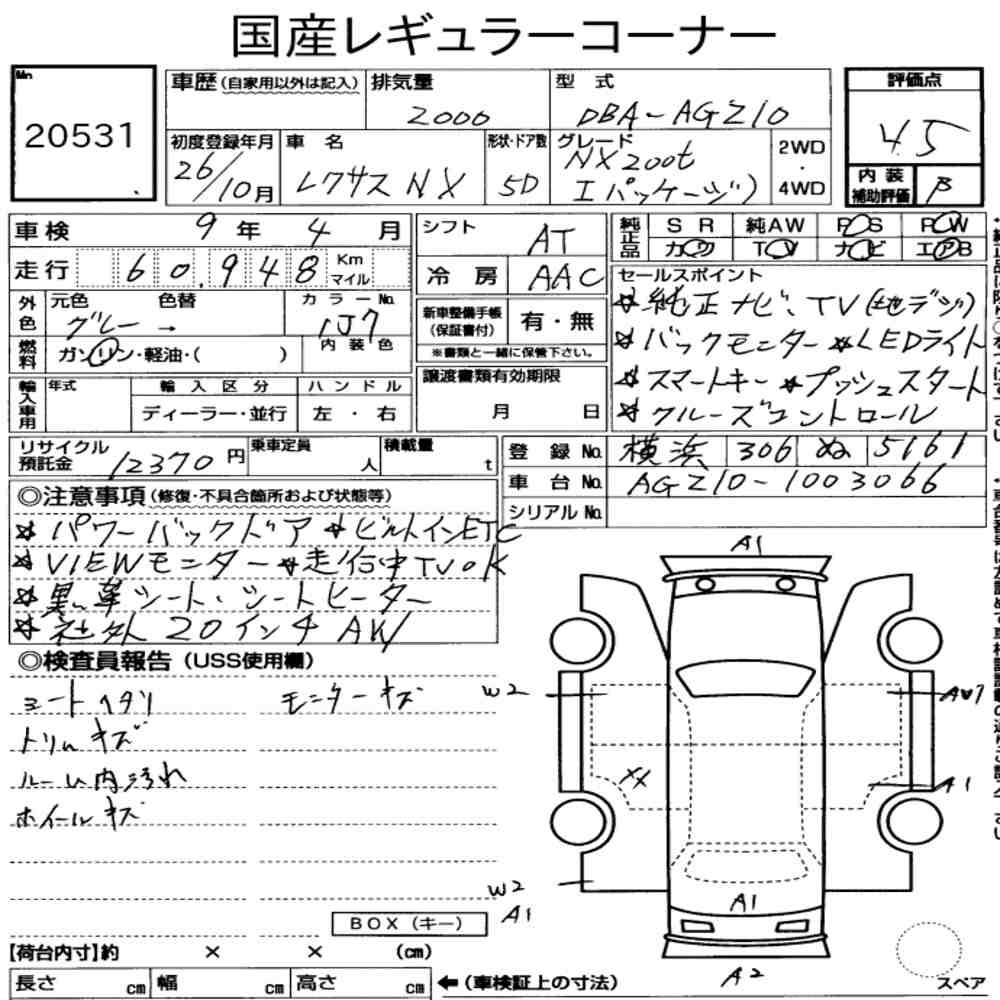 国産レギュラーコーナー
No.
20531
車歴 (自家用以外は記入)
排気量
2000
型 式
DBA-AGZ10
評価点
4.5
初度登録年月
26/10月
車 名
レクサス NX
形状・ドア数
5D
グレード
NX200t
Iパッケージ
2WD
・
4WD
内 装
補助評価
B
車検 9年 4月
走行 60,948 Km マイル
シフト
AT
冷 房
AAC
純正品
S R 純AW P S P W
カ ワ T V ナ ビ エ ア B
外色
元色 色替
グレー →
カラーNo.
1J7
内装色
燃料
ガソリン・軽油・( )
新車整備手帳
(保証書付)
有・無
※書類と一緒に保管下さい。
セールスポイント
☆純正ナビ、TV(地デジ)
☆バックモニター ☆LEDライト
☆スマートキー ☆プッシュスタート
☆クルーズコントロール
輸入車用
年式
輸 入 区 分
ディーラー・並行
ハ ン ド ル
左 ・ 右
譲渡書類有効期限
月 日
リサイクル
預託金
12370円
乗車定員
人
積載量
t
登 録 No. 横浜 306 ぬ 5161
車 台 No. AGZ10-1003066
シリアル No.
◎注意事項 (修復・不具合箇所および状態等)
☆パワーバックドア ☆ビルトインETC
☆VIEWモニター ☆走行中TVOK
☆黒革シート・シートヒーター
☆社外20インチAW
◎検査員報告 (USS使用欄)
シートヘタリ モニターキズ
トリムキズ
ルーム内汚れ
ホイールキズ
A1
W2
A1
XX
W2
A1
A1
A2
BOX (キー)
【荷台内寸】約 × × (cm)
長さ cm 幅 cm 高さ cm
← (車検証上の寸法)
スペア